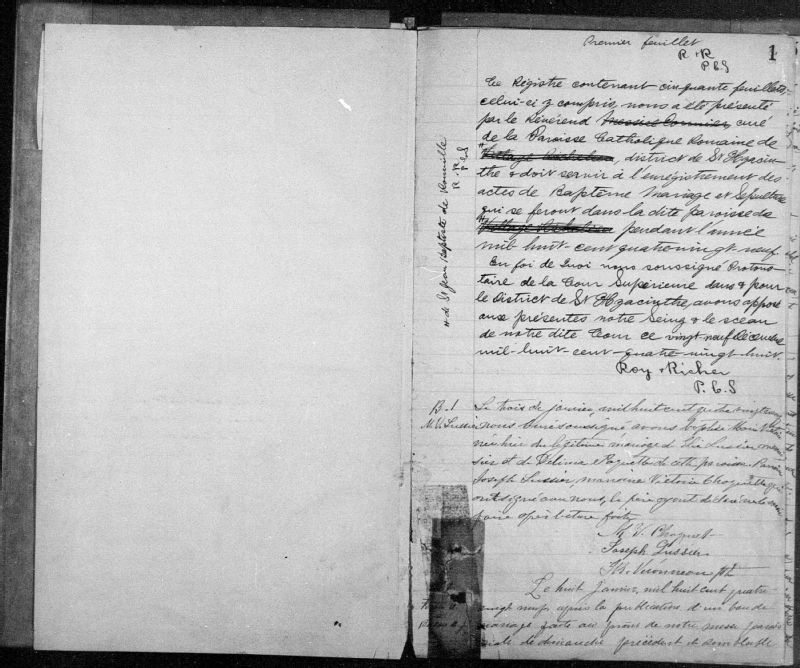 Premier feuillet
1
R & R
P C S
Ce Régistre contenant cinquante feuillets
celui-ci y compris, nous a été présenté
par le Révérend curé
de la Paroisse Catholique Romaine de
district de St Hyacin
the & doit servir à l'enrégistrement des
actes de Baptême Mariage et Sépulture
qui se feront dans la dite paroisse de
pendant l'année
mil huit-cent quatrevingt neuf.
En foi de Quoi nous soussigné Protono
taire de la Cour Supérieure dans & pour
le District de St Hyacinthe avons apposé
aux présentes notre Seing & le sceau
de notre dite Cour ce vingt neuf Décembre
mil-huit-cent-quatre vingt huit
Roy & Richer
P. C. S
# de St Jean Baptiste de Rouville
R. R.
P C S
B. 1
M. V. Lussier
Le trois de janvier, mil huit cent quatre vingt neuf
nous Curé soussigné avons baptisé Marie
née hier du légitime mariage de Lussier
et de Délima Paquette de cette paroisse. Parrain
Joseph Lussier, marraine Victoria Choquette qui
ont signé avec nous, le père ayant déclaré ne le savoir
faire après lecture faite.
M. V. Choquet
Joseph Lussier
Véronneau Ptre
Le huit Janvier, mil huit cent quatre
vingt neuf après la publication d'un ban de
mariage faite au prône de notre messe parois
siale de dimanche précédent et